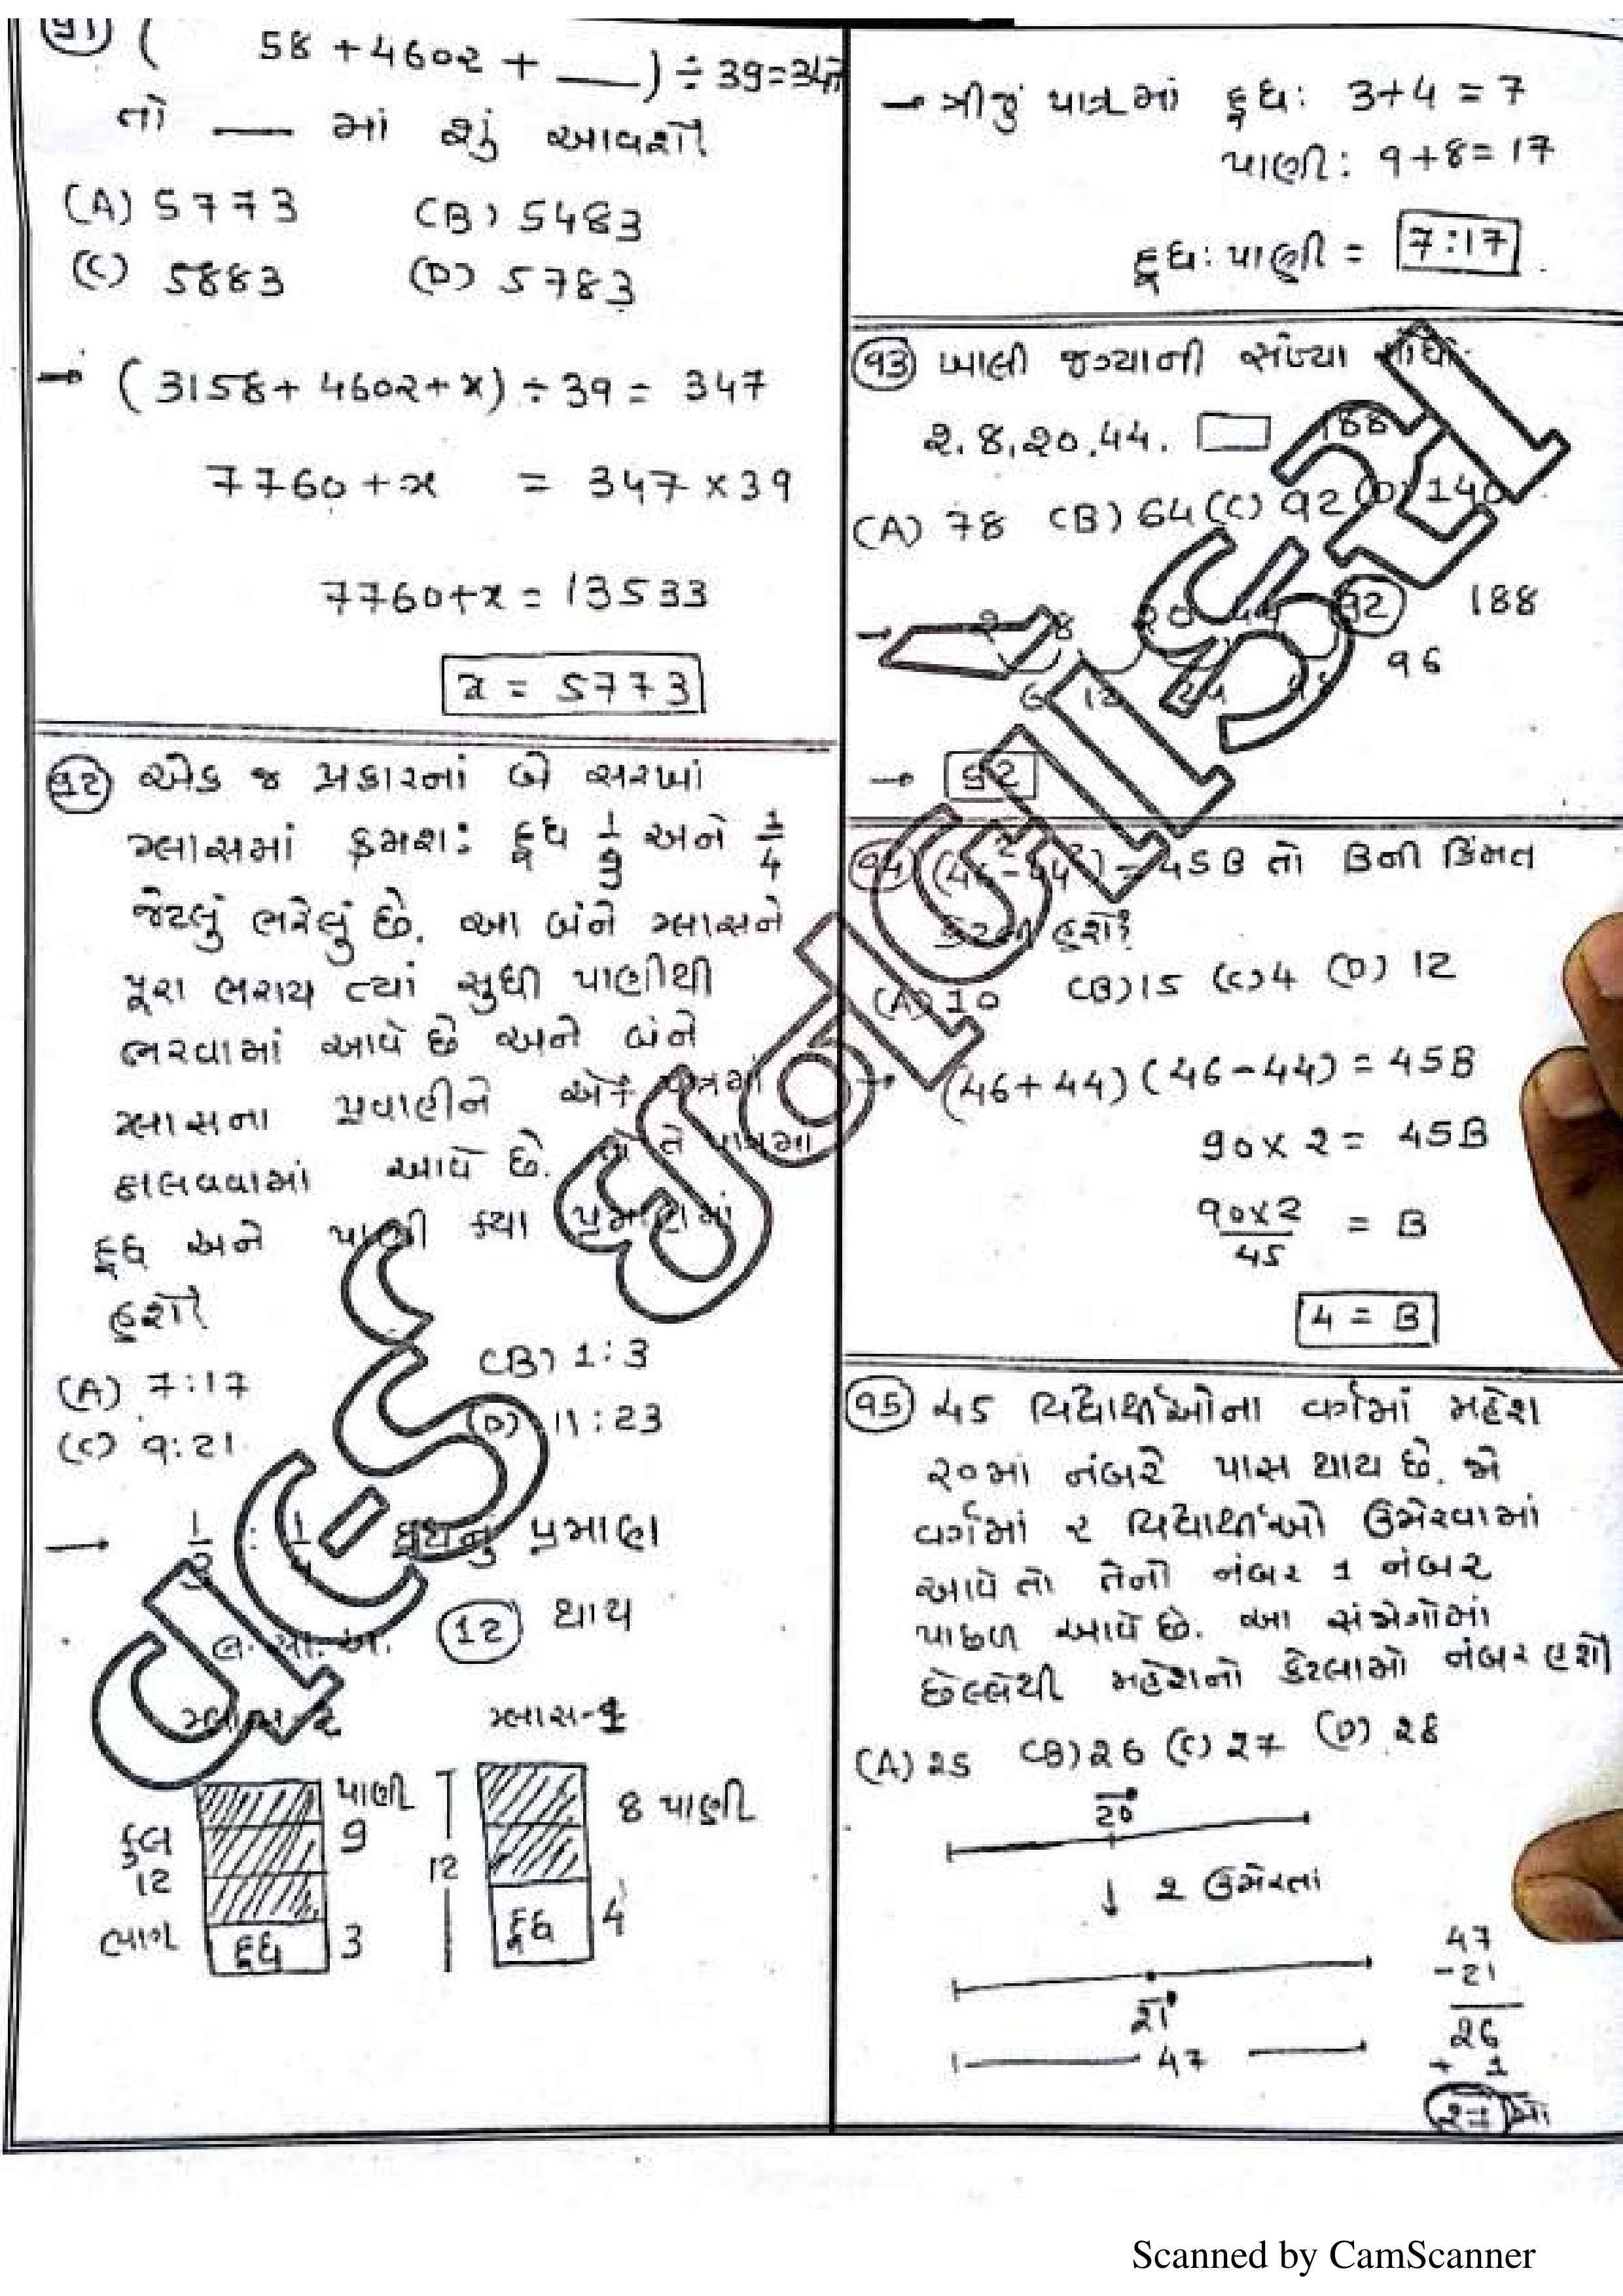 91 ( 58 + 4602 + ___ ) ÷ 39 = 347
તો ___ માં શું આવશે
(A) 5773 (B) 5483
(C) 5883 (D) 5783
→ (3158 + 4602 + x) ÷ 39 = 347
7760 + x = 347 × 39
7760 + x = 13533
x = 5773
92 એક જ પ્રકારનાં બે સરખાં
ગ્લાસમાં ક્રમશ: દૂધ 1/3 અને 1/4
જેટલું ભરેલું છે. આ બંને ગ્લાસને
પૂરા ભરાય ત્યાં સુધી પાણીથી
ભરવામાં આવે છે અને બંને
ગ્લાસના પ્રવાહીને એક પાત્રમાં
ઠાલવવામાં આવે છે. તો તે પાત્રમાં
દૂધ અને પાણી ક્યા પ્રમાણમાં
હશે
(A) 7:17 (B) 1:3
(C) 9:21 (D) 11:23
→ 1/3 : 1/4 દૂધનું પ્રમાણ
લ.સા.અ. 12 થાય
ગ્લાસ-2 ગ્લાસ-1
પાણી 8 પાણી
કુલ 9
12 12
ભાગ દૂધ 3 દૂધ 4
→ ત્રીજું પાત્રમાં દૂધ: 3+4 = 7
પાણી: 9+8 = 17
દૂધ:પાણી = 7:17
93 ખાલી જગ્યાની સંખ્યા શોધો
2, 8, 20, 44, 188
(A) 78 (B) 64 (C) 92 (D) 140
→ 2 8 20 44 92 188
6 12 24 48 96
→ 92
94 (46² - 44²) = 45B તો Bની કિંમત
કેટલી હશે?
(A) 10 (B) 15 (C) 4 (D) 12
→ (46 + 44) (46 - 44) = 45B
90 × 2 = 45B
90×2/45 = B
4 = B
95 45 વિદ્યાર્થીઓના વર્ગમાં મહેશ
20માં નંબરે પાસ થાય છે. જો
વર્ગમાં ૨ વિદ્યાર્થીઓ ઉમેરવામાં
આવે તો તેનો નંબર 1 નંબર
પાછળ આવે છે. આ સંજોગોમાં
છેલ્લેથી મહેશનો કેટલામો નંબર હશે
(A) 25 (B) 26 (C) 27 (D) 28
20
↓ 2 ઉમેરતાં
21
47
47
-21
26
+ 1
27 મો
Scanned by CamScanner